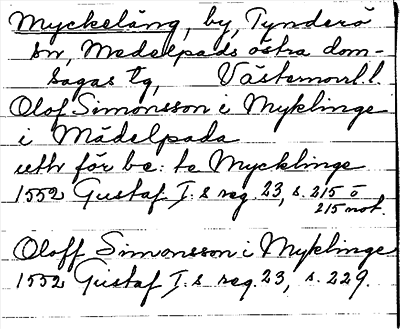 Myckeläng, by, Tynderö
sn, Medelpads östra dom-
sagas tg, Västernorrl. l.
Olof Simonsson i Myklinge
i Mädelpada
uthr för be: te Mycklinge
1552 Gustaf I:s reg. 23, s. 215 o
215 not.
Oloff Simonsson i Myklinge
1552 Gustaf I:s reg. 23, s. 229.